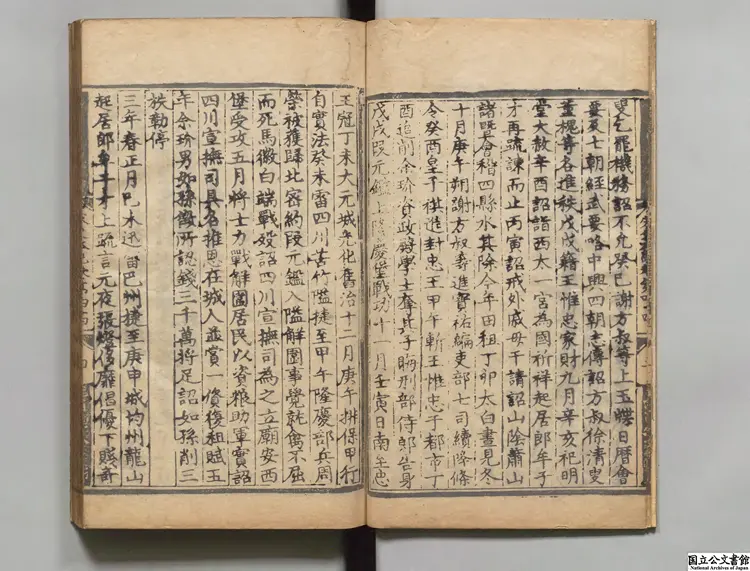 叟乞罷機務詔不允癸巳謝方叔等上玉牒日曆會
要及七朝經武要略中興四朝志傳詔方叔徐清叟
董槐等各進秩戊戌籍王惟忠家財九月辛亥祀明
堂大赦辛酉詔詣西太一宮為國祈祥起居郎牟子
才再疏諫而止丙寅詔戒外戚毋干請詔山陰蕭山
諸曁會稽四縣水其除今年田租丁卯太白晝見冬
十月庚午朔謝方叔等進寶祐編吏部七司續降條
令癸酉皇子禥進封忠王甲午斬王惟忠于都市丁
酉追削余玠資政殿學士奪其子晦刑部侍郎告身
戊戌段元鑑上隆慶堡戰功十一月壬寅日南至忠
王冠丁未大元城光化舊治十二月庚午拼條甲行
自實法癸未雷四川苦竹隘捷至甲午隆慶部兵周
榮被獲歸北密約段元鑑入隘解圍事覺就僇不屈
而死馬徽白端戰歿詔四川宣撫司為之立廟安西
堡受攻五月將士力戰解圍居民以資粮助軍實詔
四川宣撫司具名推恩在城人並賞一資復租賦五
年余玠男如孫徵所認錢三千萬將足詔如孫削三
秩勒停
三年春正月己未迅雷巴州捷至庚申城均州龍山
起居郎牟子才上疏言元夜張燈侈靡倡優下賤奇
国立公文書館
National Archives of Japan